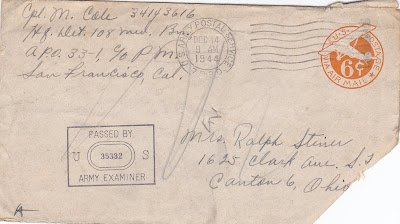 Cpl. M. Cole 34143616
Hq. Det. 108 Med. Bn.
A.P.O. 33-1, c/o P.M.
San Francisco, Cal.
U.S. ARMY POSTAL SERVICE
DEC 14
9 AM
1944
U.S. POSTAGE
6¢
VIA AIR MAIL
PASSED BY
U 35332 S
ARMY EXAMINER
Mrs. Ralph Steiner
1625 Clark Ave. S.
Canton 6, Ohio